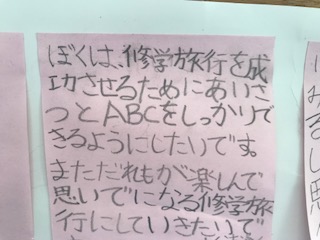 ぼくは、修学旅行を成
功させるためにあいさ
つとABCをしっかりで
きるようにしたいです。
まただれもが楽しんで
思いでになる修学旅
行にしていきたいで